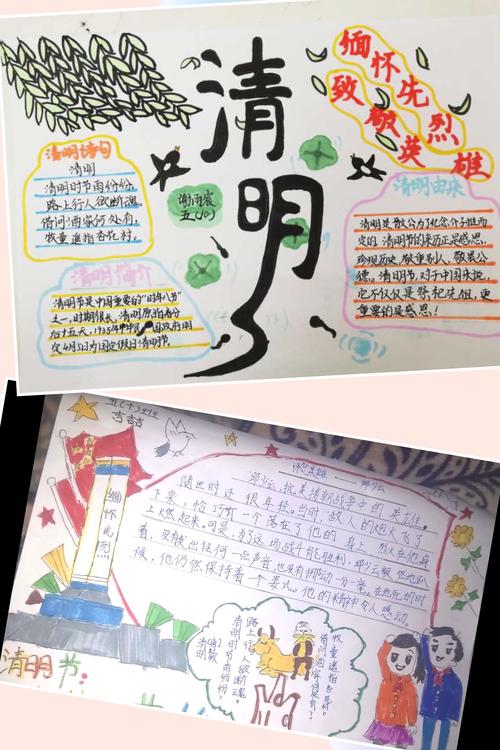 清明
缅怀先烈
致敬英雄
谢雨宸
五(10)
清明诗句
清明
清明时节雨份份,
路上行人欲断魂。
借问酒家何处有,
牧童遥指杏花村。
清明简介
清明节是中国重要的“时年八节”
之一,时期很长,清明原始春分
后十五天,1935年中华民国政府明
定4月5日为国定假日清明节。
清明由来
清明是散公为了纪念介子推而
定的,清明节的来历正是感恩、
珍现历史、敬重别人、敬景公
德。清明节,对于中国来说,
它不仅仅是祭祀先祖,更
重要的是感恩!
五(十)班
吉喆
缅怀先烈
邱少云
邱少云,抗美援朝战争中的英雄。
随世时还很年轻。当时,敌人的炮火飞了
下来,恰巧有一个落在了他的身上,烈火在他身
上燃起来。可是,为了这场战斗能胜利,邱少云
着,没有发出任何一点声音,也没有挪动一分一毫。在他死的时
候,他仍然保持着一个姿式。他的精神令人感动。
清明
清明时节雨纷纷,
路上行人欲断魂。
借问酒家何处有?
牧童遥指杏花村。
清明节